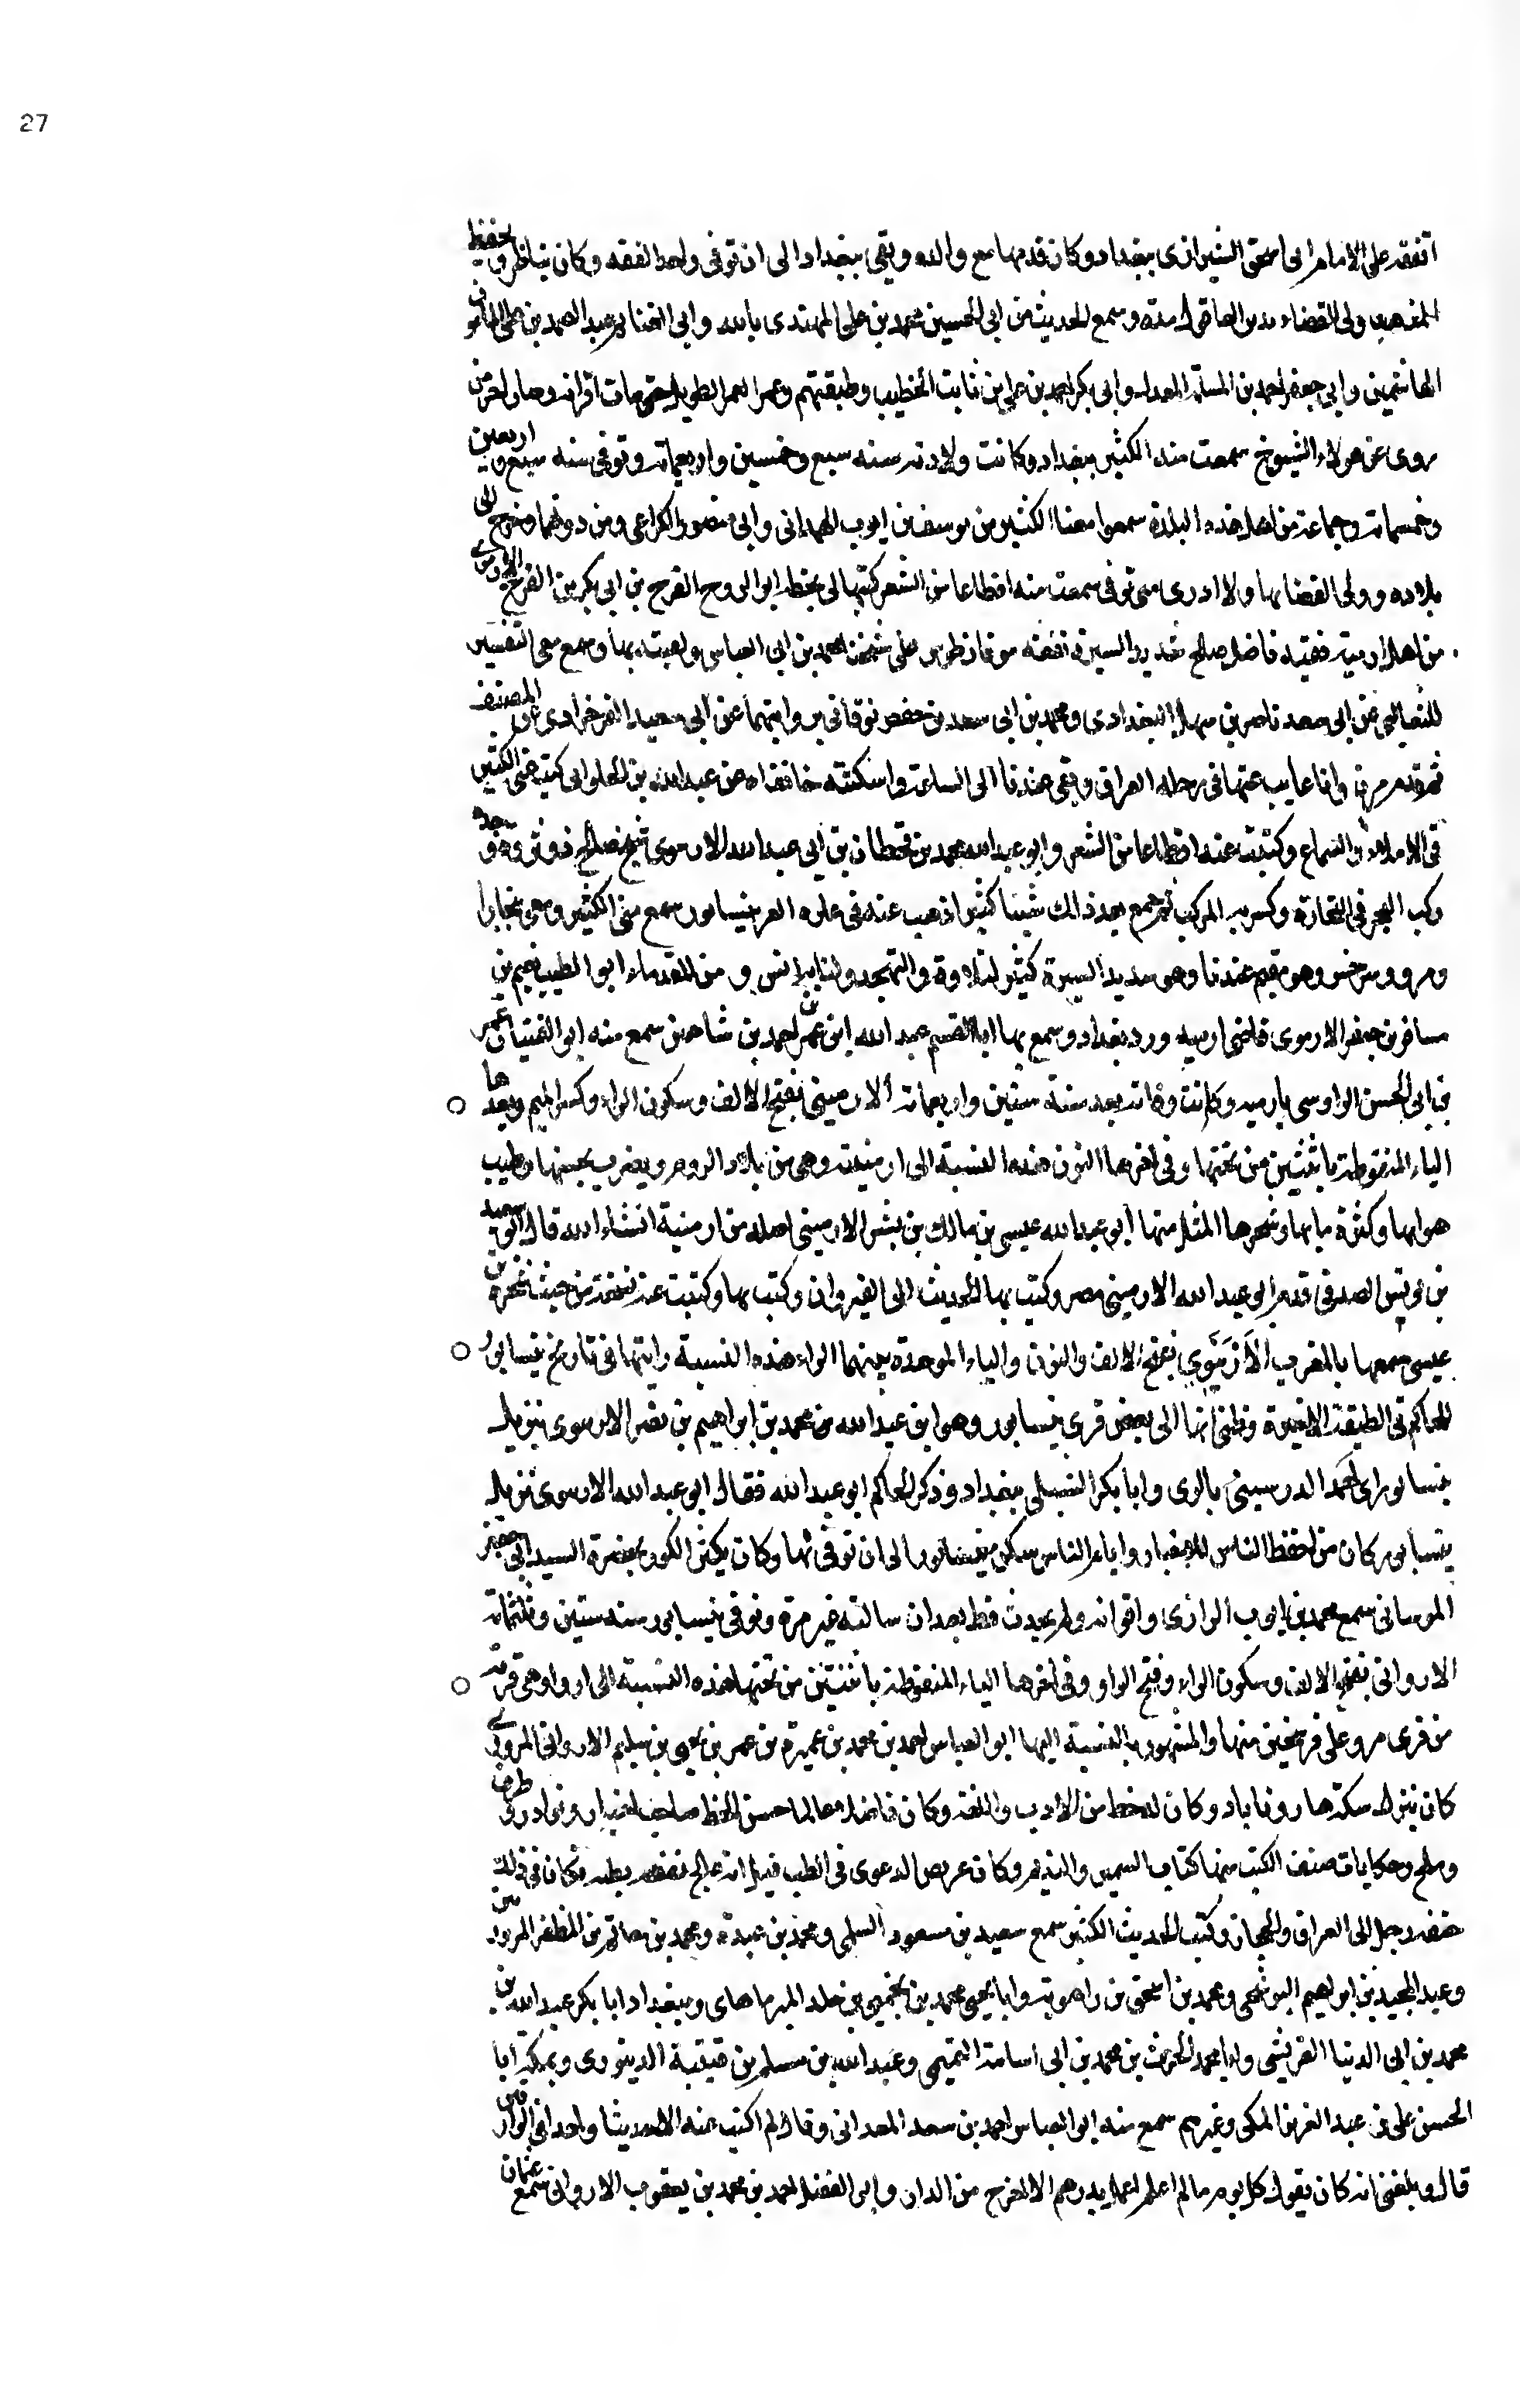 27
اتفقه على الامام ابى اسحق الشيرازى ببغداد وكان قدمها مع والده وبقى ببغداد الى ان توفى واحد الفقه وكان يناظر ويحفظ
المذهب وولى القضاء مدة وسمع الحديث من ابى الحسين محمد بن على المهتدى بالله وابى الغنايم عبد الصمد بن على المامون
الهاشمين وابى جعفر احمد بن المسلمة المعدل وابى بكر احمد بن على بن ثابت الخطيب وطبقتهم وعمر العمر الطويل حتى مات اقرانه وصار اخر من
روى عن هولاء الشيوخ سمعت منه الكثير ببغداد وكانت ولادته سنه سبع وخمسين واربعمائة وتوفى سنه سبع واربعين
وخمسمائة وجماعة من اهل هذه البلدة سمعوا معنا الكثير من يوسف بن ايوب الهمدانى وابى منصور الكراعى ومن دونهما وخرج الى
بلاده وولى القضا بها ولا ادرى متى توفى سمعت منه اقطاعا من الشعر كتبها لى بخطه ابو الروح الفرج بن ابى بكر بن الفرج الارموى
من اهل ارمية فقيه فاضل صالح سديد السيرة تفقه على شيخنا محمد بن ابى العباس ولقيته بها وسمع معى التفسير
للثعالبى عن ابى سعد ناصر بن سهل البغدادى ومحمد بن ابى سعد بن حفص نوقانى بروايتهما عن ابى سعيد الفرخزادى عن المصنف
ثم قدم مرو وانا غايب عنها فى رحلة العراق وبقى عندنا الى الساعة واسكنته خانقاه عبد الله بن الحلوانى كتب عنى الكثير
فى الاملاء والسماع وكتبت عنه اقطاعا من الشعر وابو عبد الله محمد بن قحطان بن ابى عبد الله الارموى شيخ صالح ذو ثروة وجده
ركب البحر فى التجارة وكسر به المركب ثم جمع بعد ذلك شيئا كثيرا ذهب عنه فى الغز بنيسابور سمع منى الكثير ومعى ببخارا
ومرو وسرخس وهو مقيم عندنا وهو سديد السيرة كثير التلاوة والتهجد ولنا به انس ومن القدماء ابو الطيب نعيم بن
مسافر بن جعفر الارموى قاضى ارمية ورد بغداد وسمع بها ابا القسم عبيد الله ابن عمر بن احمد بن شاهين سمع منه ابو الفتيان عمر
بن ابى الحسن الرواسى بارمية وكانت وفاته بعد سنة ستين واربعمائة الارمينى بفتح الالف وسكون الراء وكسر الميم وبعدها
الياء المنقوطة باثنتين من تحتها وفى اخرها النون هذه النسبة الى ارمينية وهى من بلاد الروم ويضرب بحسنها وطيب
هوايها وكثرة مايها وشجرها المثل منها ابو عبد الله عيسى بن مالك بن بشر الارمينى اصله من ارمنية انشاء الله قال ابو سعيد
بن يونس الصدفى قدم ابو عبد الله الارمينى مصر وكتب بها الحديث الى القيروان وكتب بها وكتبت عنه نسخة من حديث شجرة بن
عيسى سمعها بالمغرب الارنبوي بفتح الالف والنون والباء الموحدة بينهما الراء هذه النسبة رايتها فى تاريخ نيسابور
للحاكم فى الطبقة الاخيرة وظنى انها الى بعض قرى نيسابور وهو ابو عبد الله بن محمد بن ابراهيم بن نصر نزيل
نيسابور بالرى وابا بكر الشبلى ببغداد وذكر الحاكم ابو عبد الله فقال ابو عبد الله نزيل
نيسابور كان من احفظ الناس للاخبار وايام الناس سكن نيسابور الى ان توفى بها وكان يكثر الكون بحضرة السيد ابى جعفر
الموسانى سمع محمد بن ايوب الرازى واقرانه ولم يحدث قط بعد ان سالته غير مرة وتوفى بنيسابور سنه ستين وثلثمائة
الاروائى بفتح الالف وسكون الراء وفتح الواو وفى اخرها الياء المنقوطة باثنتين من تحتها هذه النسبة الى اروا وهى قرية
من قرى مرو على فرسخين منها والمشهور بالنسبة اليها ابو العباس احمد بن محمد بن عميرة بن عمر بن يحيى بن سليم الاروائى المروزى
كان ينزل سكة وكان له حظ من الادب واللغة وكان فاضلا عالما حسن الخط صاحب اخبار ونوادر وطرف
وملح وحكايات صنف الكتب منها كتاب والنديم وكان عريض الدعوى فى الطب قيل انه عالج نفسه بطبه وكان فى ذلك
حتفه رحل الى العراق والحجاز وكتب الحديث الكثير سمع سعيد بن مسعود السلمى ومحمد بن عبدة ومحمد بن حاتم بن المظفر المروزيين
وعبد المجيد بن ابراهيم البوشنجى ومحمد بن اسحق بن راهويه وابا يحيى محمد بن يحيى بن خلد وببغداد ابا بكر عبد الله بن
محمد بن ابى الدنيا القرشى وابا محمد الحرث بن محمد بن ابى اسامة التميمى وعبد الله بن مسلم بن قتيبة الدينورى وبمكة ابا
الحسن على بن عبد العزيز المكى وغيرهم سمع منه ابو العباس احمد بن سعد المعدانى وقال لم اكتب عنه الا حديثا واحدا
قال وبلغنى انه كان يقول كل يوم ما لم اعلم بدرهم الا اخرج من الدار وابو الفضل احمد بن محمد بن يعقوب الاروائى سمع عثمان